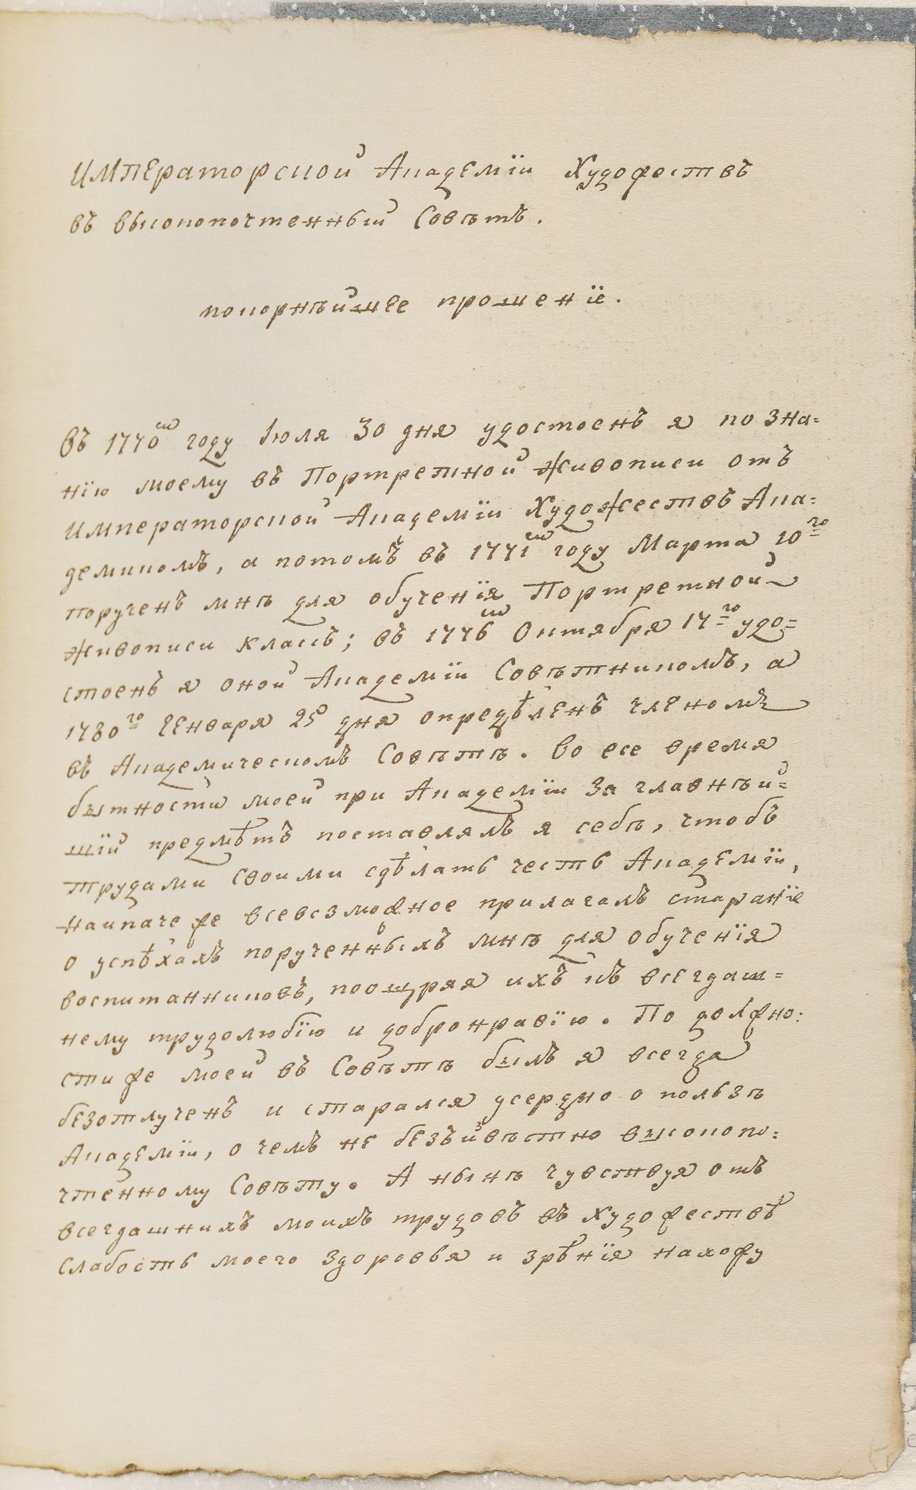 Императорской Академїи Художествъ
въ высокопочтенный Совѣтъ.
покорнѣйшее прошенїе.
Въ 1770м году Iюля 30 дня удостоенъ я по зна=
нїю моему въ Портретной живописи отъ
Императорской Академїи Художествъ Ака=
демикомъ, а потомъ въ 1771м году Марта 10го
порученъ мнѣ для обученїя Портретной
живописи классъ; въ 1776м Октября 17го удо=
стоенъ я оной Академїи Совѣтникомъ, а
1780го Генваря 25 дня опредѣленъ членомъ
въ Академическомъ Совѣтѣ. Во все время
бытности моей при Академїи за главнѣй=
шїй предмѣтъ поставлялъ я себѣ, чтобъ
трудами своими сдѣлать честь Академїи,
наипаче же всевозможное прилагалъ старанїе
о успѣхахъ порученныхъ мнѣ для обученїя
воспитанниковъ, поощряя ихъ къ всегдаш=
нему трудолюбїю и добронравїю. По должно=
сти же моей въ Совѣтѣ былъ я всегда
безотлученъ и старался усердно о пользѣ
Академїи, о чемъ не безъизвѣстно высокопо=
чтенному Совѣту. А нынѣ чувствуя отъ
всегдашнихъ моихъ трудовъ въ художествѣ
слабость моего здоровья и зрѣнїя нахожу